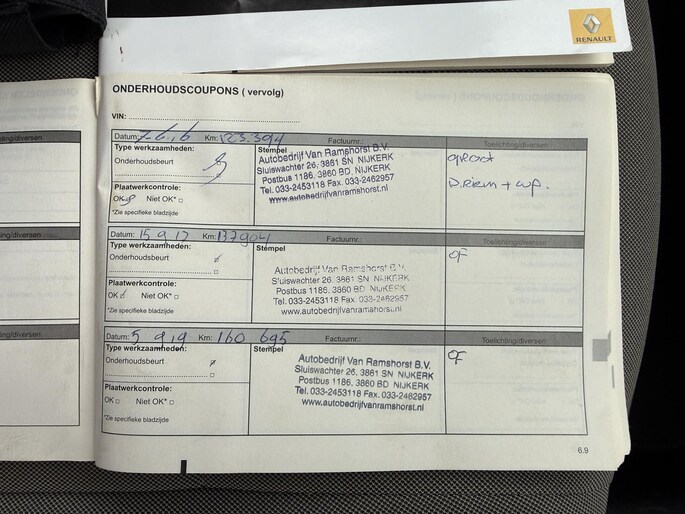 RENAULT
ONDERHOUDSCOUPONS ( vervolg)
VIN:
Datum: 7.6.16 Km: 123.394 Factuurnr.: Toelichting/diversen
Type werkzaamheden: Stempel
Onderhoudsbeurt
Autobedrijf Van Ramshorst B.V.
Sluiswachter 26, 3861 SN NIJKERK
Postbus 1186, 3860 BD NIJKERK
Tel. 033-2453118 Fax. 033-2462957
www.autobedrijfvanramshorst.nl
groot
D.Riem + wp.
Plaatwerkcontrole:
OK Niet OK*
*Zie specifieke bladzijde
Datum: 15 9 17 Km: 137904 Factuurnr.: Toelichting/diversen
Type werkzaamheden: Stempel
Onderhoudsbeurt
Autobedrijf Van Ramshorst B.V.
Sluiswachter 26, 3861 SN NIJKERK
Postbus 1186, 3860 BD NIJKERK
Tel. 033-2453118 Fax. 033-2462957
www.autobedrijfvanramshorst.nl
OF
Plaatwerkcontrole:
OK Niet OK*
*Zie specifieke bladzijde
Datum: 5 9 19 Km: 160 695 Factuurnr.: Toelichting/diversen
Type werkzaamheden: Stempel
Onderhoudsbeurt
Autobedrijf Van Ramshorst B.V.
Sluiswachter 26, 3861 SN NIJKERK
Postbus 1186, 3860 BD NIJKERK
Tel. 033-2453118 Fax. 033-2462957
www.autobedrijfvanramshorst.nl
OF
Plaatwerkcontrole:
OK Niet OK*
*Zie specifieke bladzijde
6.9